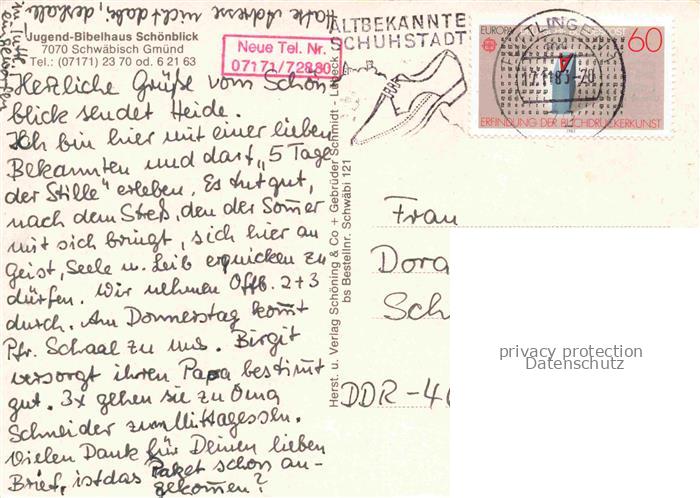 Hatte Adresse nicht dabei, deshalb
in Tüte
eingeworfen
Jugend-Bibelhaus Schönblick
7070 Schwäbisch Gmünd
Tel.: (07171) 23 70 od. 6 21 63
Neue Tel. Nr.
07171/72880
Herzliche Grüße vom Schön
blick sendet Heide.
Ich bin hier mit einer lieben
Bekannten und darf „5 Tage
der Stille“ erleben. Es tut gut,
nach dem Streß, den der Som̄er
mit sich bringt, sich hier an
Geist, Seele u. Leib erquicken zu
dürfen. Wir nehmen Offb. 2+3
durch. Am Donnerstag kom̄t
Pfr. Schaal zu uns. Birgit
versorgt ihren Papa bestimmt
gut. 3x gehen sie zu Oma
Schneider zum Mittagessen.
Vielen Dank für Deinen lieben
Brief, ist das Paket schon an-
gekom̄en?
Herst. u. Verlag Schöning & Co + Gebrüder Schmidt - Lübeck
bs Bestellnr. Schwäbi 121
ALTBEKANNTE
SCHUHSTADT
17.11.83-20
EUROPA
60
ERFINDUNG DER BUCHDRUCKERKUNST
Frau
Dora
Sch
DDR-40
privacy protection
Datenschutz